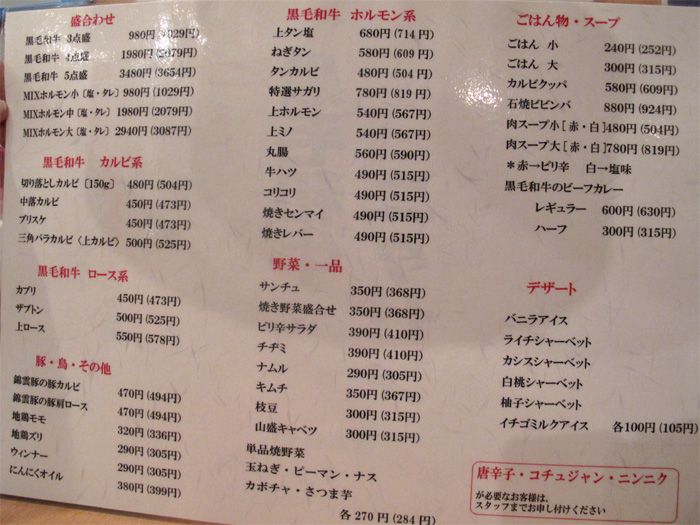 盛合わせ
黒毛和牛 3点盛 980円 (1029円)
黒毛和牛 4点盛 1980円 (2079円)
黒毛和牛 5点盛 3480円 (3654円)
MIXホルモン小 [塩・タレ] 980円 (1029円)
MIXホルモン中 [塩・タレ] 1980円 (2079円)
MIXホルモン大 [塩・タレ] 2940円 (3087円)
黒毛和牛 カルビ系
切り落としカルビ [150g] 480円 (504円)
中落カルビ 450円 (473円)
ブリスケ 450円 (473円)
三角バラカルビ〈上カルビ〉 500円 (525円)
黒毛和牛 ロース系
カブリ 450円 (473円)
ザブトン 500円 (525円)
上ロース 550円 (578円)
豚・鳥・その他
錦雲豚の豚カルビ 470円 (494円)
錦雲豚の豚肩ロース 470円 (494円)
地鶏モモ 320円 (336円)
地鶏ズリ 290円 (305円)
ウィンナー 290円 (305円)
にんにくオイル 380円 (399円)
黒毛和牛 ホルモン系
上タン塩 680円 (714円)
ねぎタン 580円 (609円)
タンカルビ 480円 (504円)
特選サガリ 780円 (819円)
上ホルモン 540円 (567円)
上ミノ 540円 (567円)
丸腸 560円 (590円)
牛ハツ 490円 (515円)
コリコリ 490円 (515円)
焼きセンマイ 490円 (515円)
焼きレバー 490円 (515円)
野菜・一品
サンチュ 350円 (368円)
焼き野菜盛合せ 350円 (368円)
ピリ辛サラダ 390円 (410円)
チヂミ 390円 (410円)
ナムル 290円 (305円)
キムチ 350円 (367円)
枝豆 300円 (315円)
山盛キャベツ 300円 (315円)
単品焼野菜
玉ねぎ・ピーマン・ナス
カボチャ・さつま芋
各270円 (284円)
ごはん物・スープ
ごはん 小 240円 (252円)
ごはん 大 300円 (315円)
カルビクッパ 580円 (609円)
石焼ビビンバ 880円 (924円)
肉スープ小 [赤・白] 480円 (504円)
肉スープ大 [赤・白] 780円 (819円)
*赤→ピリ辛 白→塩味
黒毛和牛のビーフカレー
レギュラー 600円 (630円)
ハーフ 300円 (315円)
デザート
バニラアイス
ライチシャーベット
カシスシャーベット
白桃シャーベット
柚子シャーベット
イチゴミルクアイス 各100円 (105円)
唐辛子・コチュジャン・ニンニク
が必要なお客様は、
スタッフまでお申し付けください